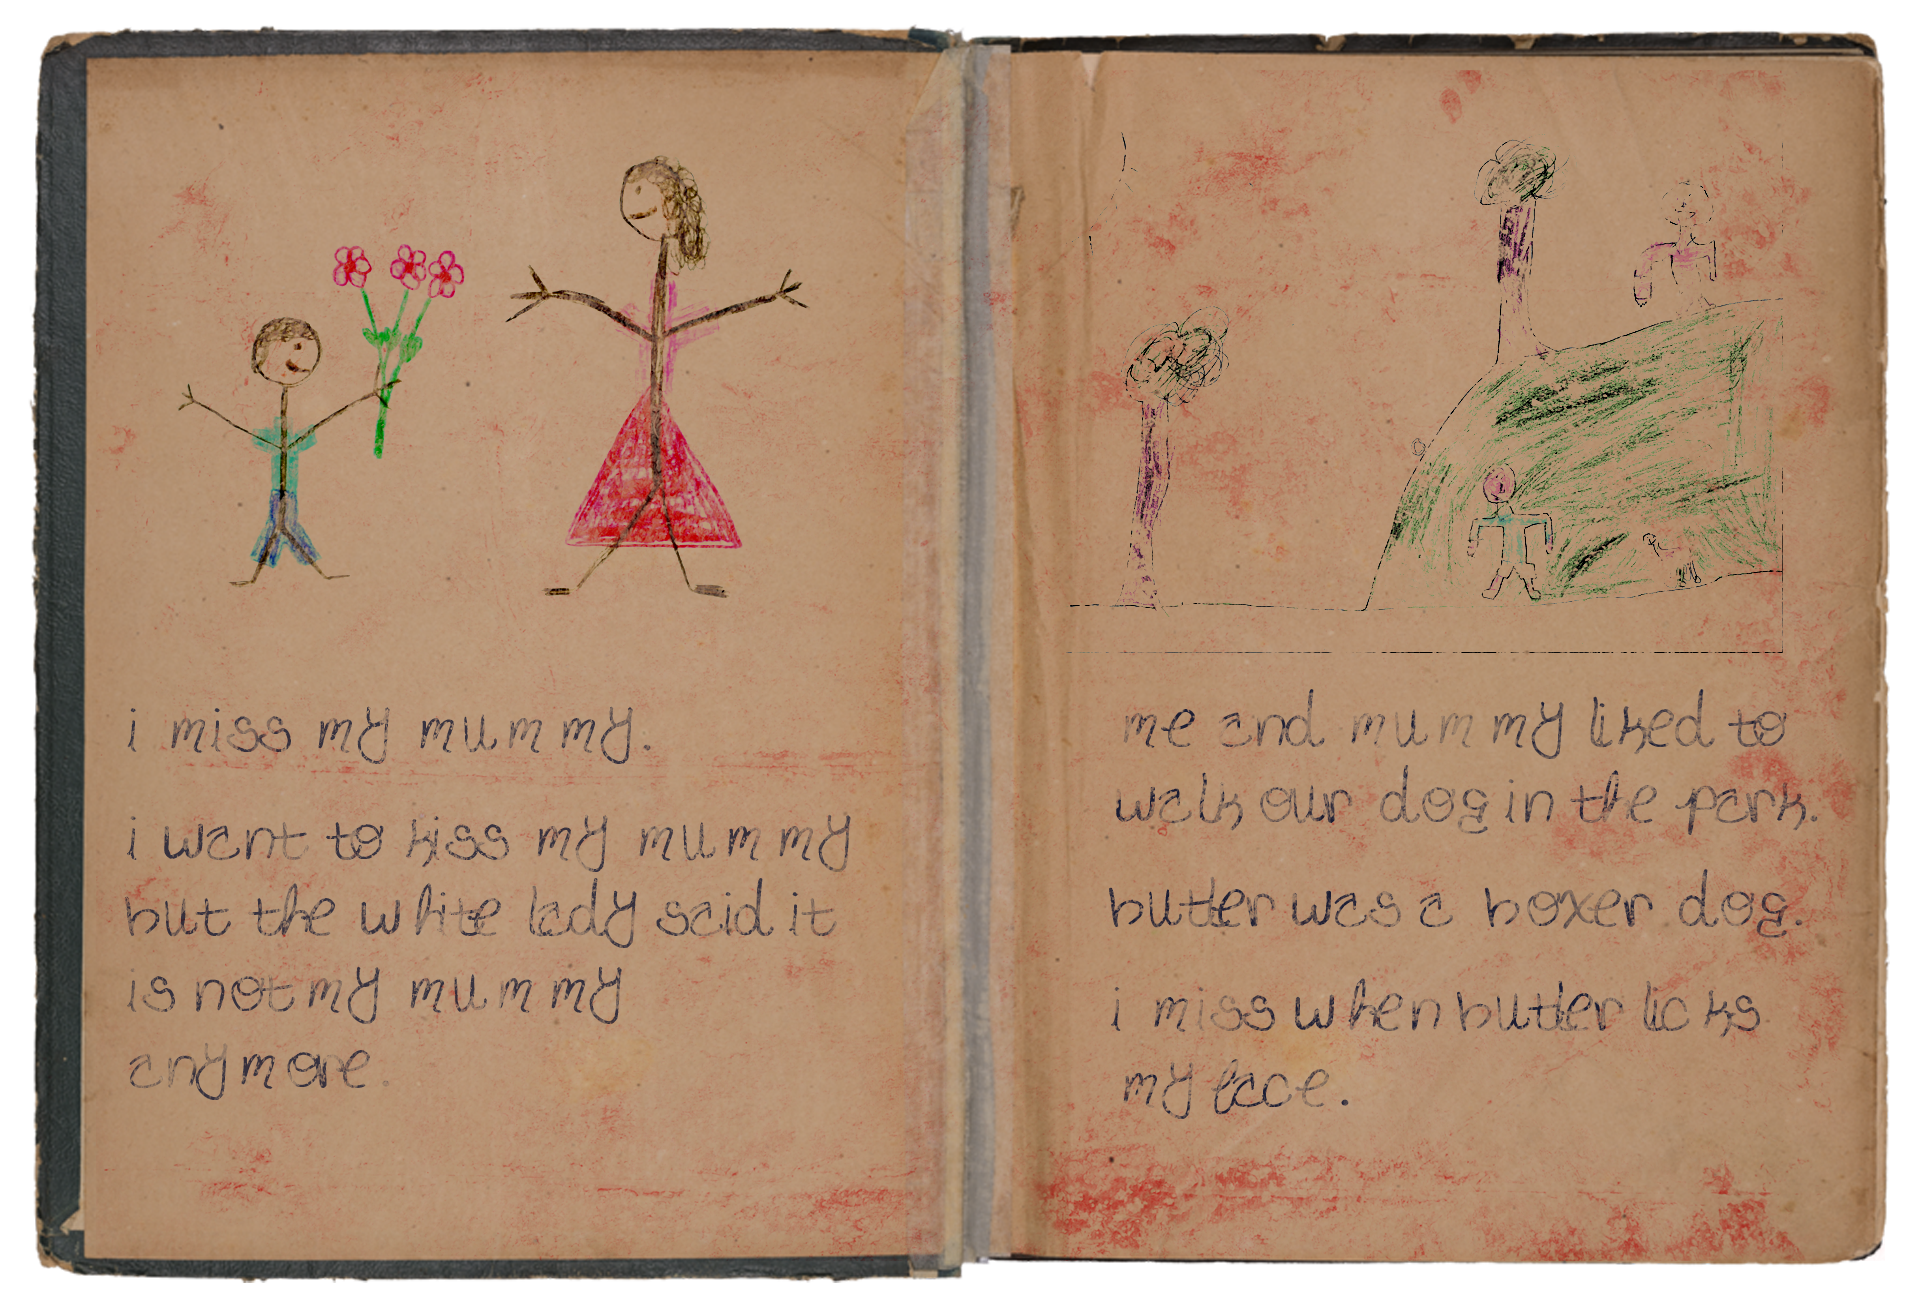 i miss my mummy.
i want to kiss my mummy
but the white lady said it
is not my mummy
anymore.
me and mummy liked to
walk our dog in the park.
butler was a boxer dog.
i miss when butler licks
my face.